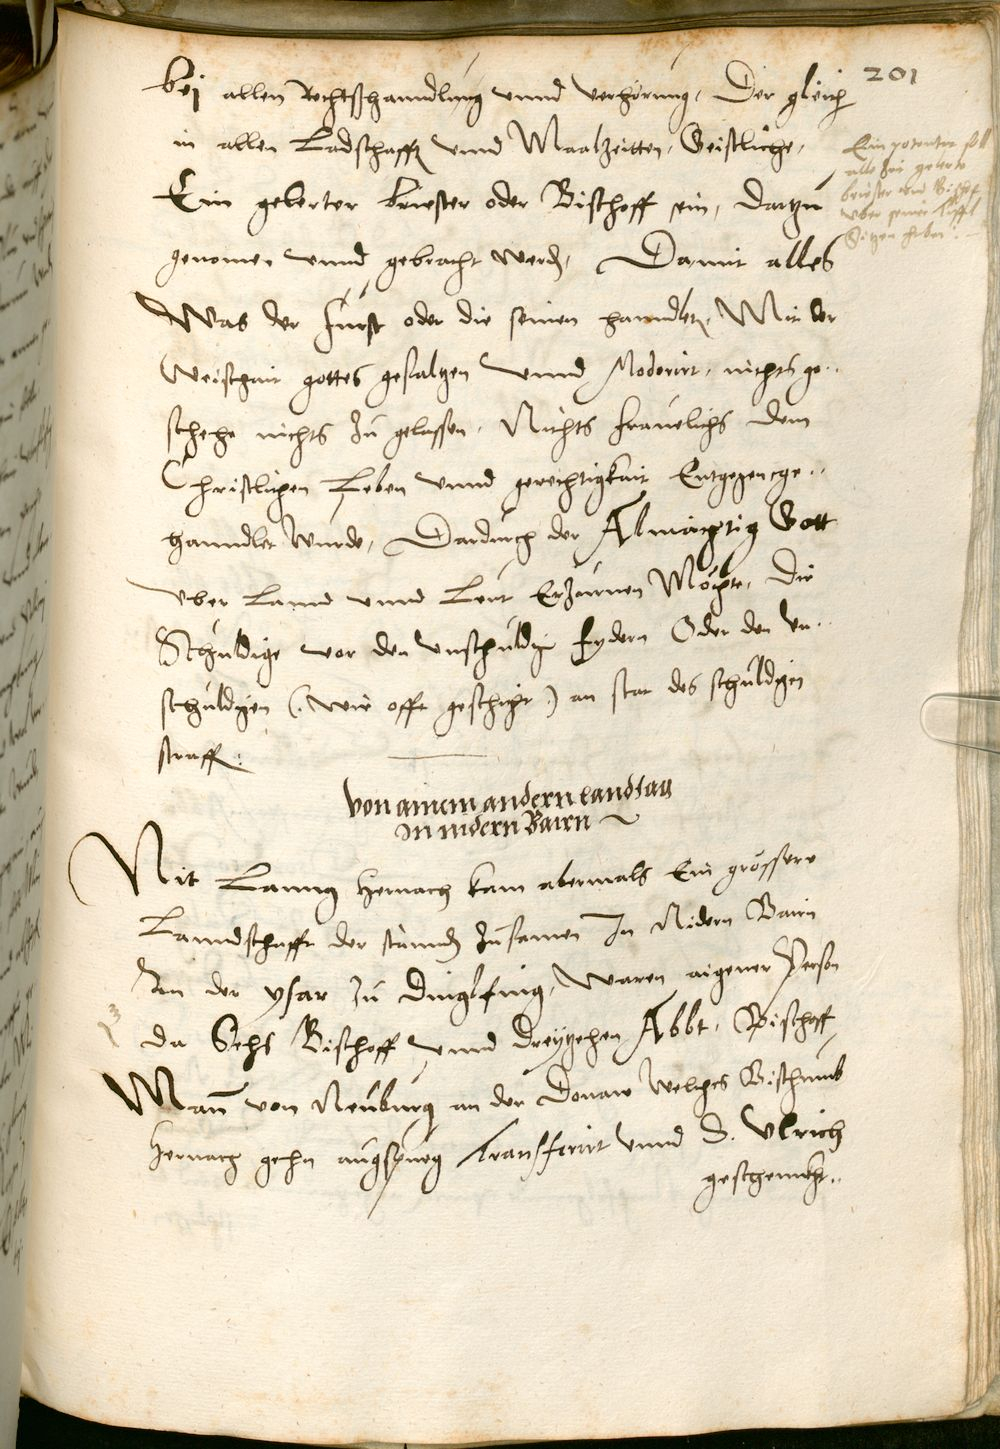 201
bei allen Rechtshanndlung unnd verhörung, Der gleich
in allen Ladschafft unnd Maalzeitten, Geistliche,
Ein gelerter briester oder Bischoff sein, Dartzu
genomen unnd gebracht werd, Damit alles
Was der Fürst oder die seinen hanndlet, Mit der
Weischait gottes gesaltzen unnd Moderirt, nichts ge..
schehe nichts zu gelassen, Nichts frauelichs dem
Christlichen Leben unnd gerechtigkait Entgegen ge..
hanndlet wurde, Dardurch der Almächtig Gott
vber Lannd unnd Leut Erzürnen Möchte, die
Schuldige vor den vnschuldig fydern Oder den vn..
schuldigen (: wie offt geschicht :) an stat des schuldigen
straff:
Ein potentat soll
alle Zei gelerte
briester vnd Bischof
vber seiner
Sitzen haben
von ainem andern landtag
In nidern Bairn ~
Nit Lanng hernach kam abermals Ein grössere
Lanndschafft der stannd zusamen In Nidern Bairn
An der ysar zu dinglfing, Waren aigener Person
da Sechs Bischoff unnd dreyzehen Abbt, Bischoff
Mann von Neuburg an der Donaw welches Bischtumb
hernach gehn augspurg transferirt unnd S. Vlrich
geschennckt..